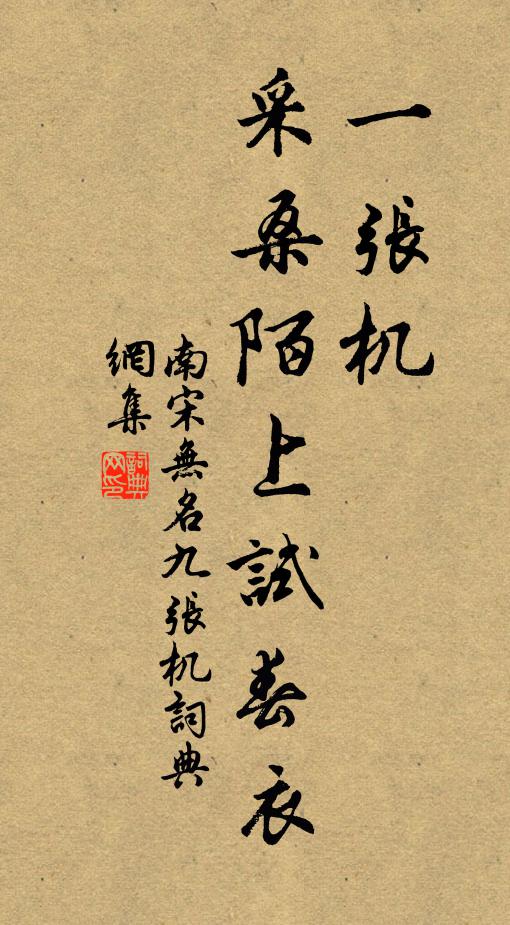 一張机
采桑陌上試春衣
南宋無名九張机詞典
網集
詞典
网印